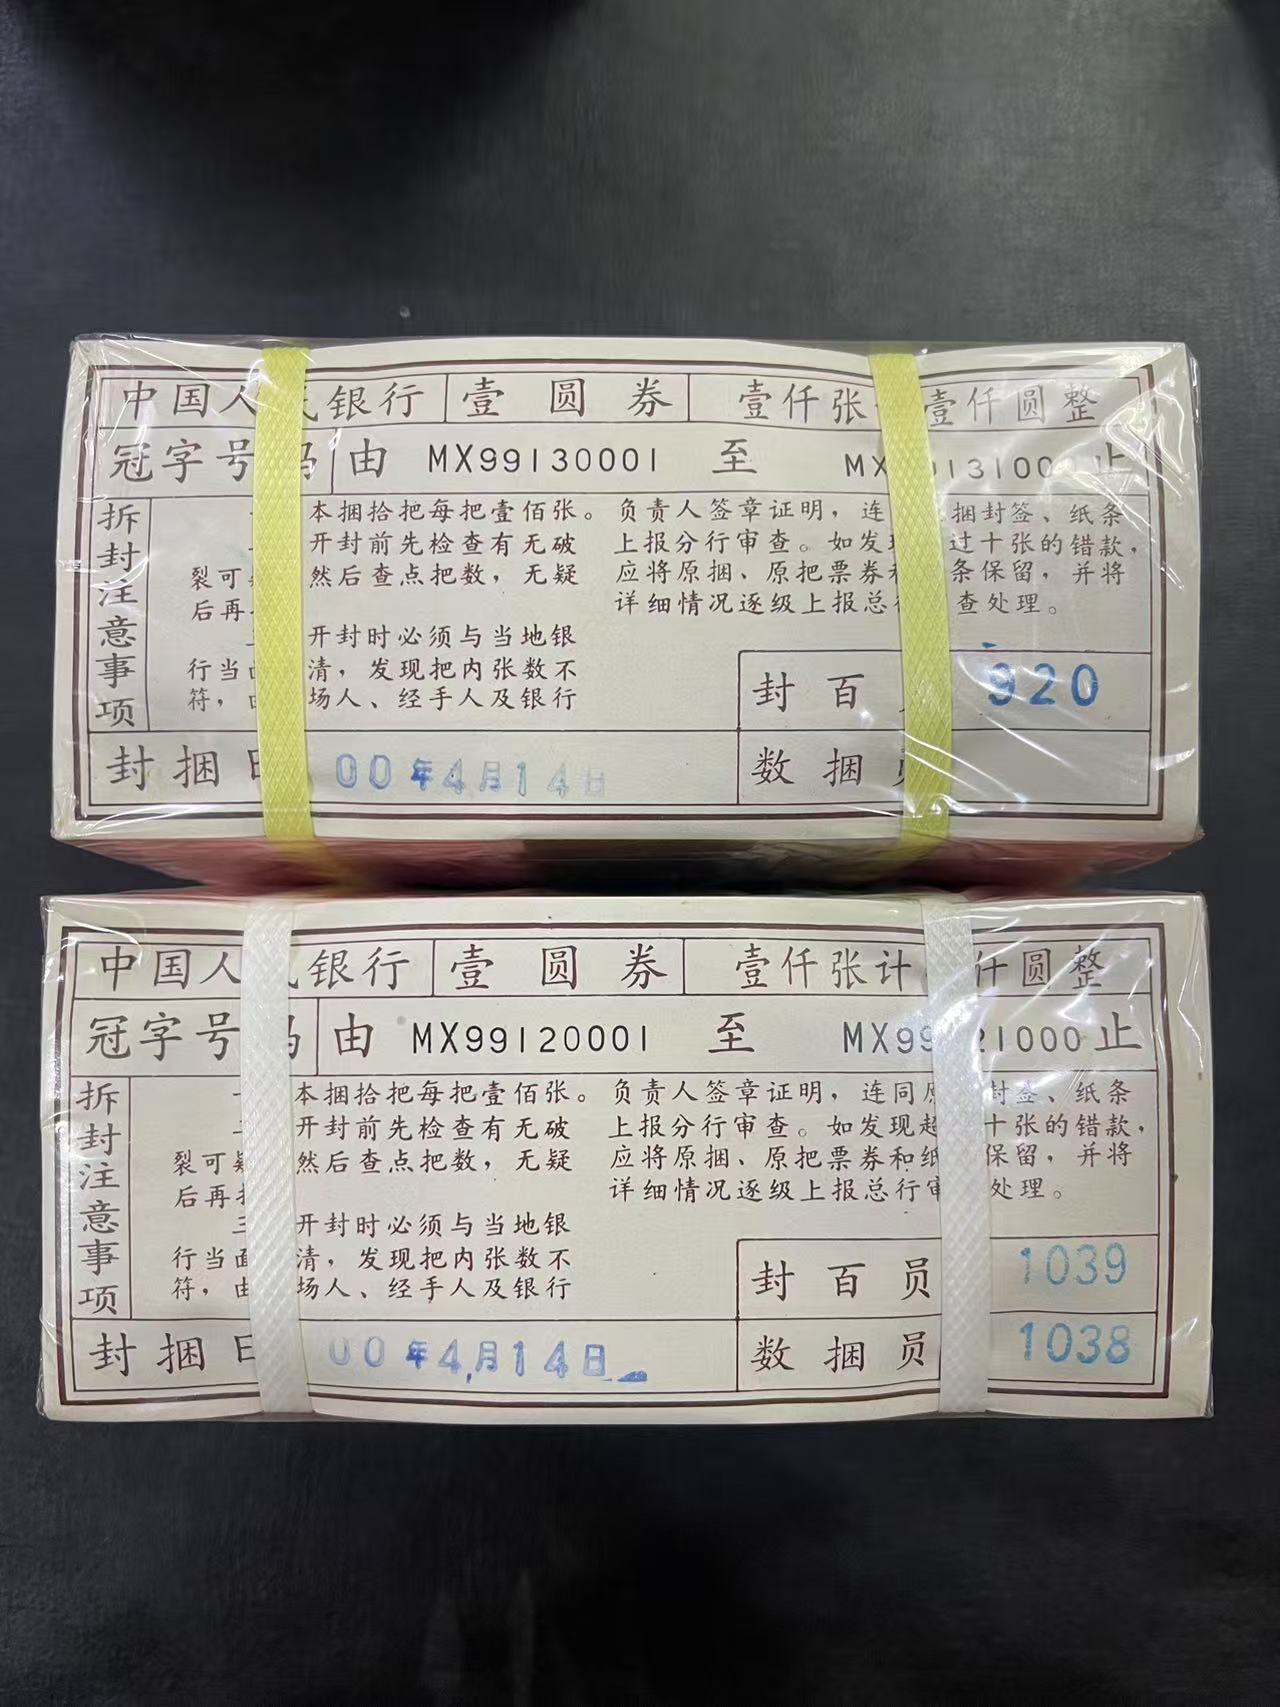 中国人民银行 壹圆券 壹仟张 壹仟圆整
冠字号码 由 MX99130001 至 MX 9131000 止
拆封注意事项
本捆拾把每把壹佰张。
开封前先检查有无破
裂可 然后查点把数，无疑
后再
开封时必须与当地银
行当 清，发现把内张数不
符， 场人、经手人及银行
负责人签章证明，连 捆封签、纸条
上报分行审查。如发现 过十张的错款，
应将原捆、原把票券和 条保留，并将
详细情况逐级上报总行 查处理。
封百 920
封捆日 00年4月14日
数捆员
中国人民银行 壹圆券 壹仟张计 仟圆整
冠字号码 由 MX99120001 至 MX99 21000 止
拆封注意事项
一 本捆拾把每把壹佰张。
开封前先检查有无破
裂可疑 然后查点把数，无疑
后再
三 开封时必须与当地银
行当面 清，发现把内张数不
符，由 场人、经手人及银行
负责人签章证明，连同原 封签、纸条
上报分行审查。如发现超 十张的错款，
应将原捆、原把票券和纸 保留，并将
详细情况逐级上报总行审 处理。
封百员 1039
封捆日 00年4月14日
数捆员 1038